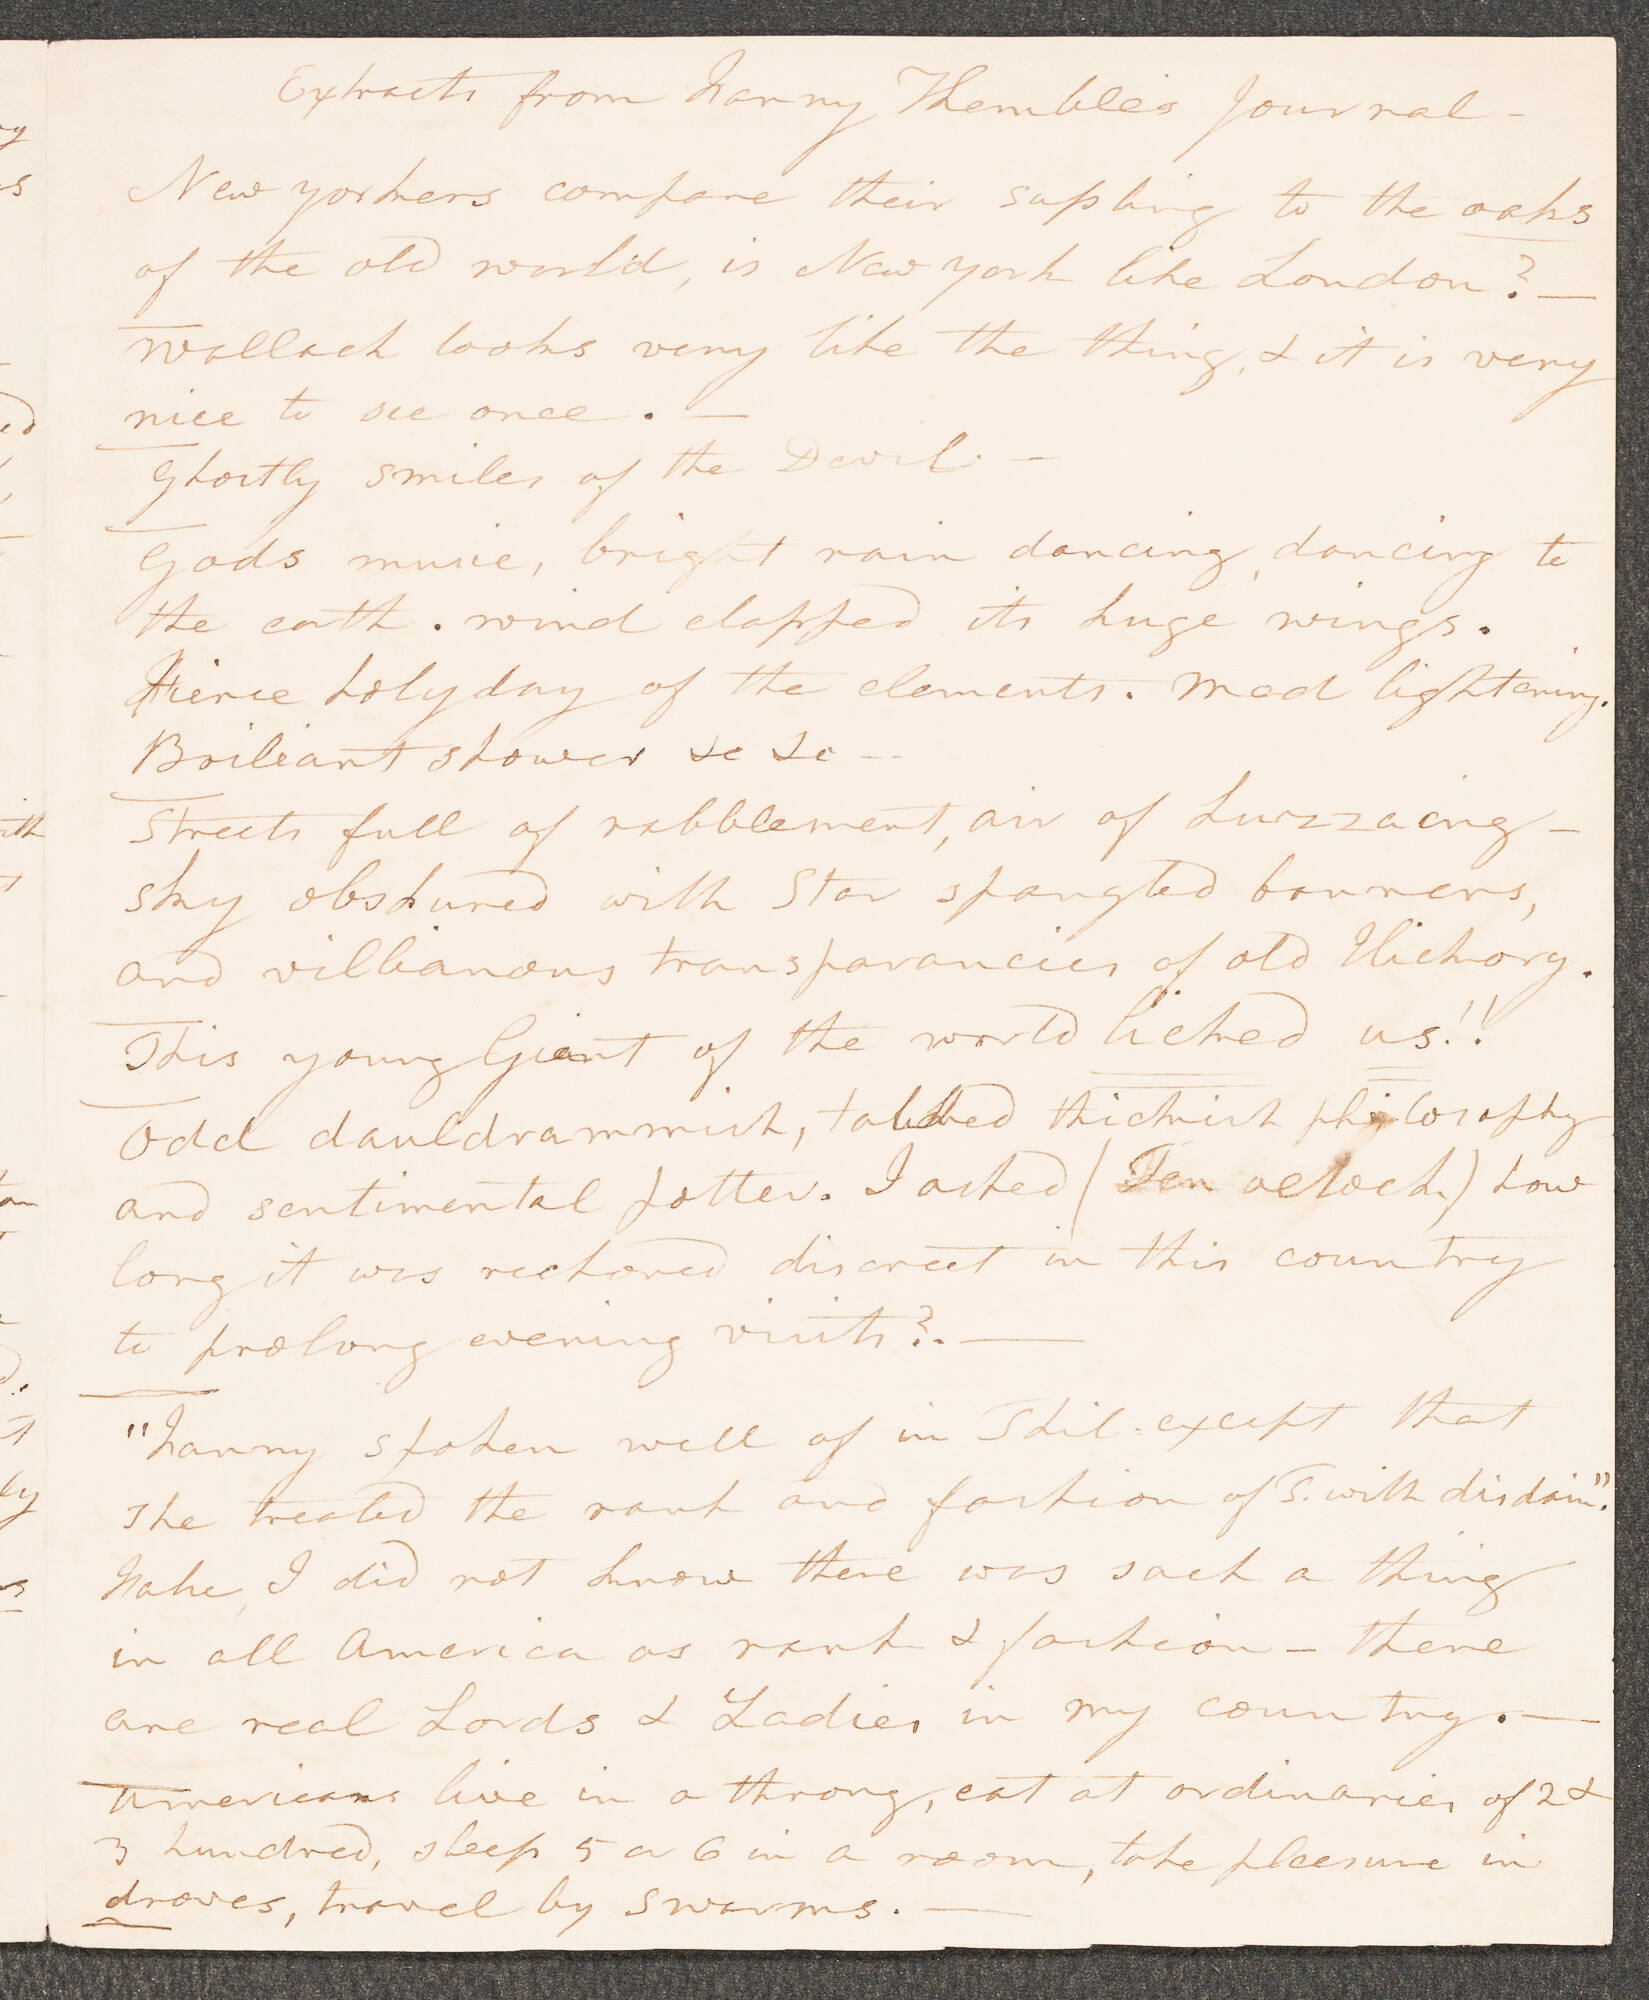 Extracts from Fanny Khembles Journal -
New yorkers compare their sapling to the oaks
of the old world, is New york like London? —
Wallack looks very like the thing, & it is very
nice to see once. —
Ghostly smiles of the Devil. -
Gods music, bright rain dancing, dancing to
the earth. wind clapped its huge wings.
Fierce holyday of the elements. Mad lightening.
Briliant shower &c &c --
Streets full of rabblement, air of huzzaing -
sky obskured with Star spangled banners,
and villianous transparancies of old Hickory.
This young Giant of the world licked us!!
Odd dauldrammish, talked thickish philosophy
and sentimental potter. I asked (Ten oclock.) how
long it was reckoned discreet in this country
to prolong evening visits?. —
"Fanny spoken well of in Phil. except that
She treated the rank and fashion of P. with disdain".
Hahe, I did not know there was such a thing
in all America as rank & fashion - there
are real Lords & Ladies in my country. —
Americans live in a throng, eat at ordinaries of 2 &
3 hundred, sleep 5 or 6 in a room, take pleasure in
droves, travel by swarms. —